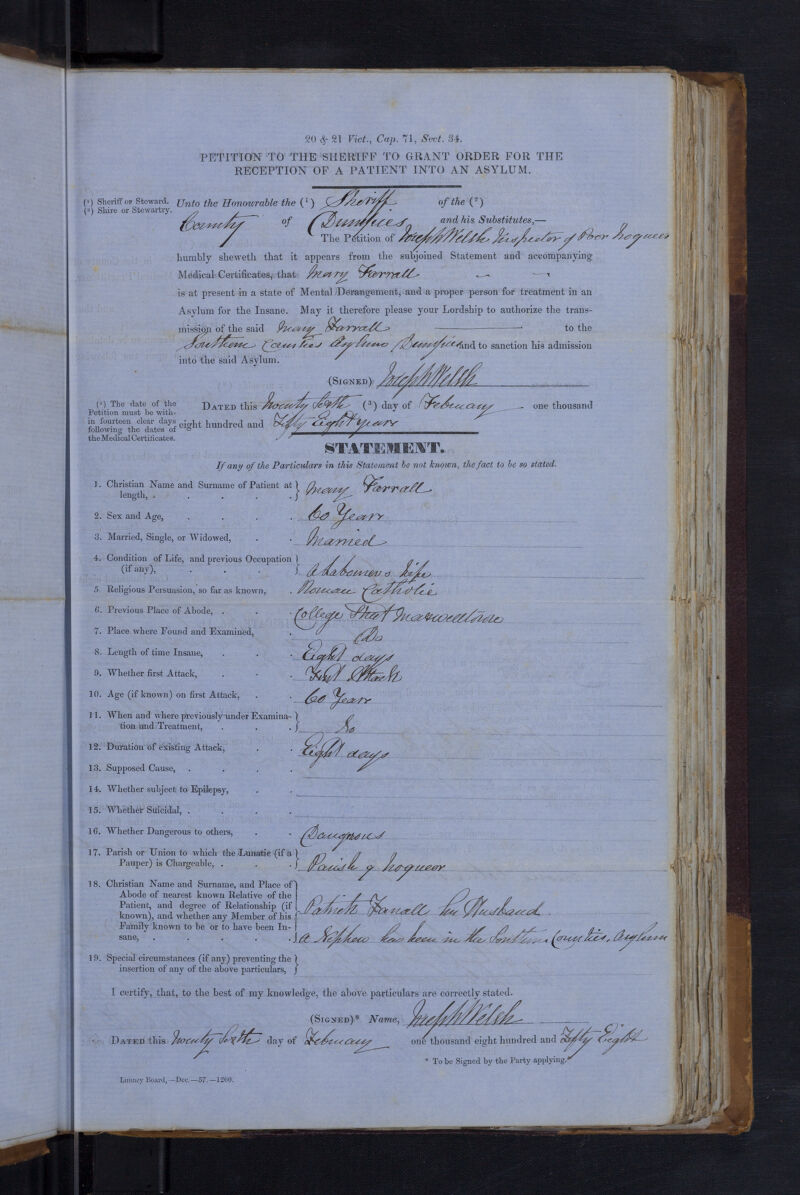 20 & 21 Vict., Cap. 71, Sect. 34.
PETITION TO THE SHERIFF TO GRANT ORDER FOR THE
RECEPTION OF A PATIENT INTO AN ASYLUM.
(¹) Sheriff or Steward.
(²) Shire or Stewartry.
Unto the Honourable the (¹) Sheriff of the (²)
County of Dumfries and his Substitutes,—
The Petition of Joseph Welsh Inspector of Poor Troqueer
humbly sheweth that it appears from the subjoined Statement and accompanying
Medical Certificates, that Mary Farrall
is at present in a state of Mental Derangement, and a proper person for treatment in an
Asylum for the Insane. May it therefore please your Lordship to authorize the trans-
mission of the said Mary Farrall to the
Southern Counties Asylum Dumfries and to sanction his admission
into the said Asylum.
(SIGNED) Joseph Welsh
(³) The date of the
Petition must be with-
in fourteen clear days
following the dates of
the Medical Certificates.
DATED this Twenty Sixth (³) day of February one thousand
eight hundred and Fifty Eight years
STATEMENT.
If any of the Particulars in this Statement be not known, the fact to be so stated.
1. Christian Name and Surname of Patient at
length, . . . . . Mary Farrall
2. Sex and Age, . . . . 60 Years
3. Married, Single, or Widowed, . . Married
4. Condition of Life, and previous Occupation
(if any), . . . . A Labourers Wife
5 Religious Persuasion, so far as known, . Roman Catholic
6. Previous Place of Abode, . . . College Street Maxwelltown
7. Place where Found and Examined, . Do
8. Length of time Insane, . . . Eight days
9. Whether first Attack, . . . First Attack
10. Age (if known) on first Attack, . . 60 Years
11. When and where previously under Examina-
tion and Treatment, . . . No
12. Duration of existing Attack, . . Eight days
13. Supposed Cause, . . . .
14. Whether subject to Epilepsy, . .
15. Whether Suicidal, . . . .
16. Whether Dangerous to others, . . Dangerous
17. Parish or Union to which the Lunatic (if a
Pauper) is Chargeable, . . . Parish of Troqueer
18. Christian Name and Surname, and Place of
Abode of nearest known Relative of the
Patient, and degree of Relationship (if
known), and whether any Member of his
Family known to be or to have been In-
sane, . . . . .
Patrick Farrall her Husband
A Nephew has been in the Southern Counties Asylum
19. Special circumstances (if any) preventing the
insertion of any of the above particulars,
I certify, that, to the best of my knowledge, the above particulars are correctly stated.
(SIGNED)* Name, Joseph Welsh
DATED this Twenty Sixth day of February one thousand eight hundred and Fifty Eight
* To be Signed by the Party applying.
Lunacy Board,—Dec.—57.—1200.